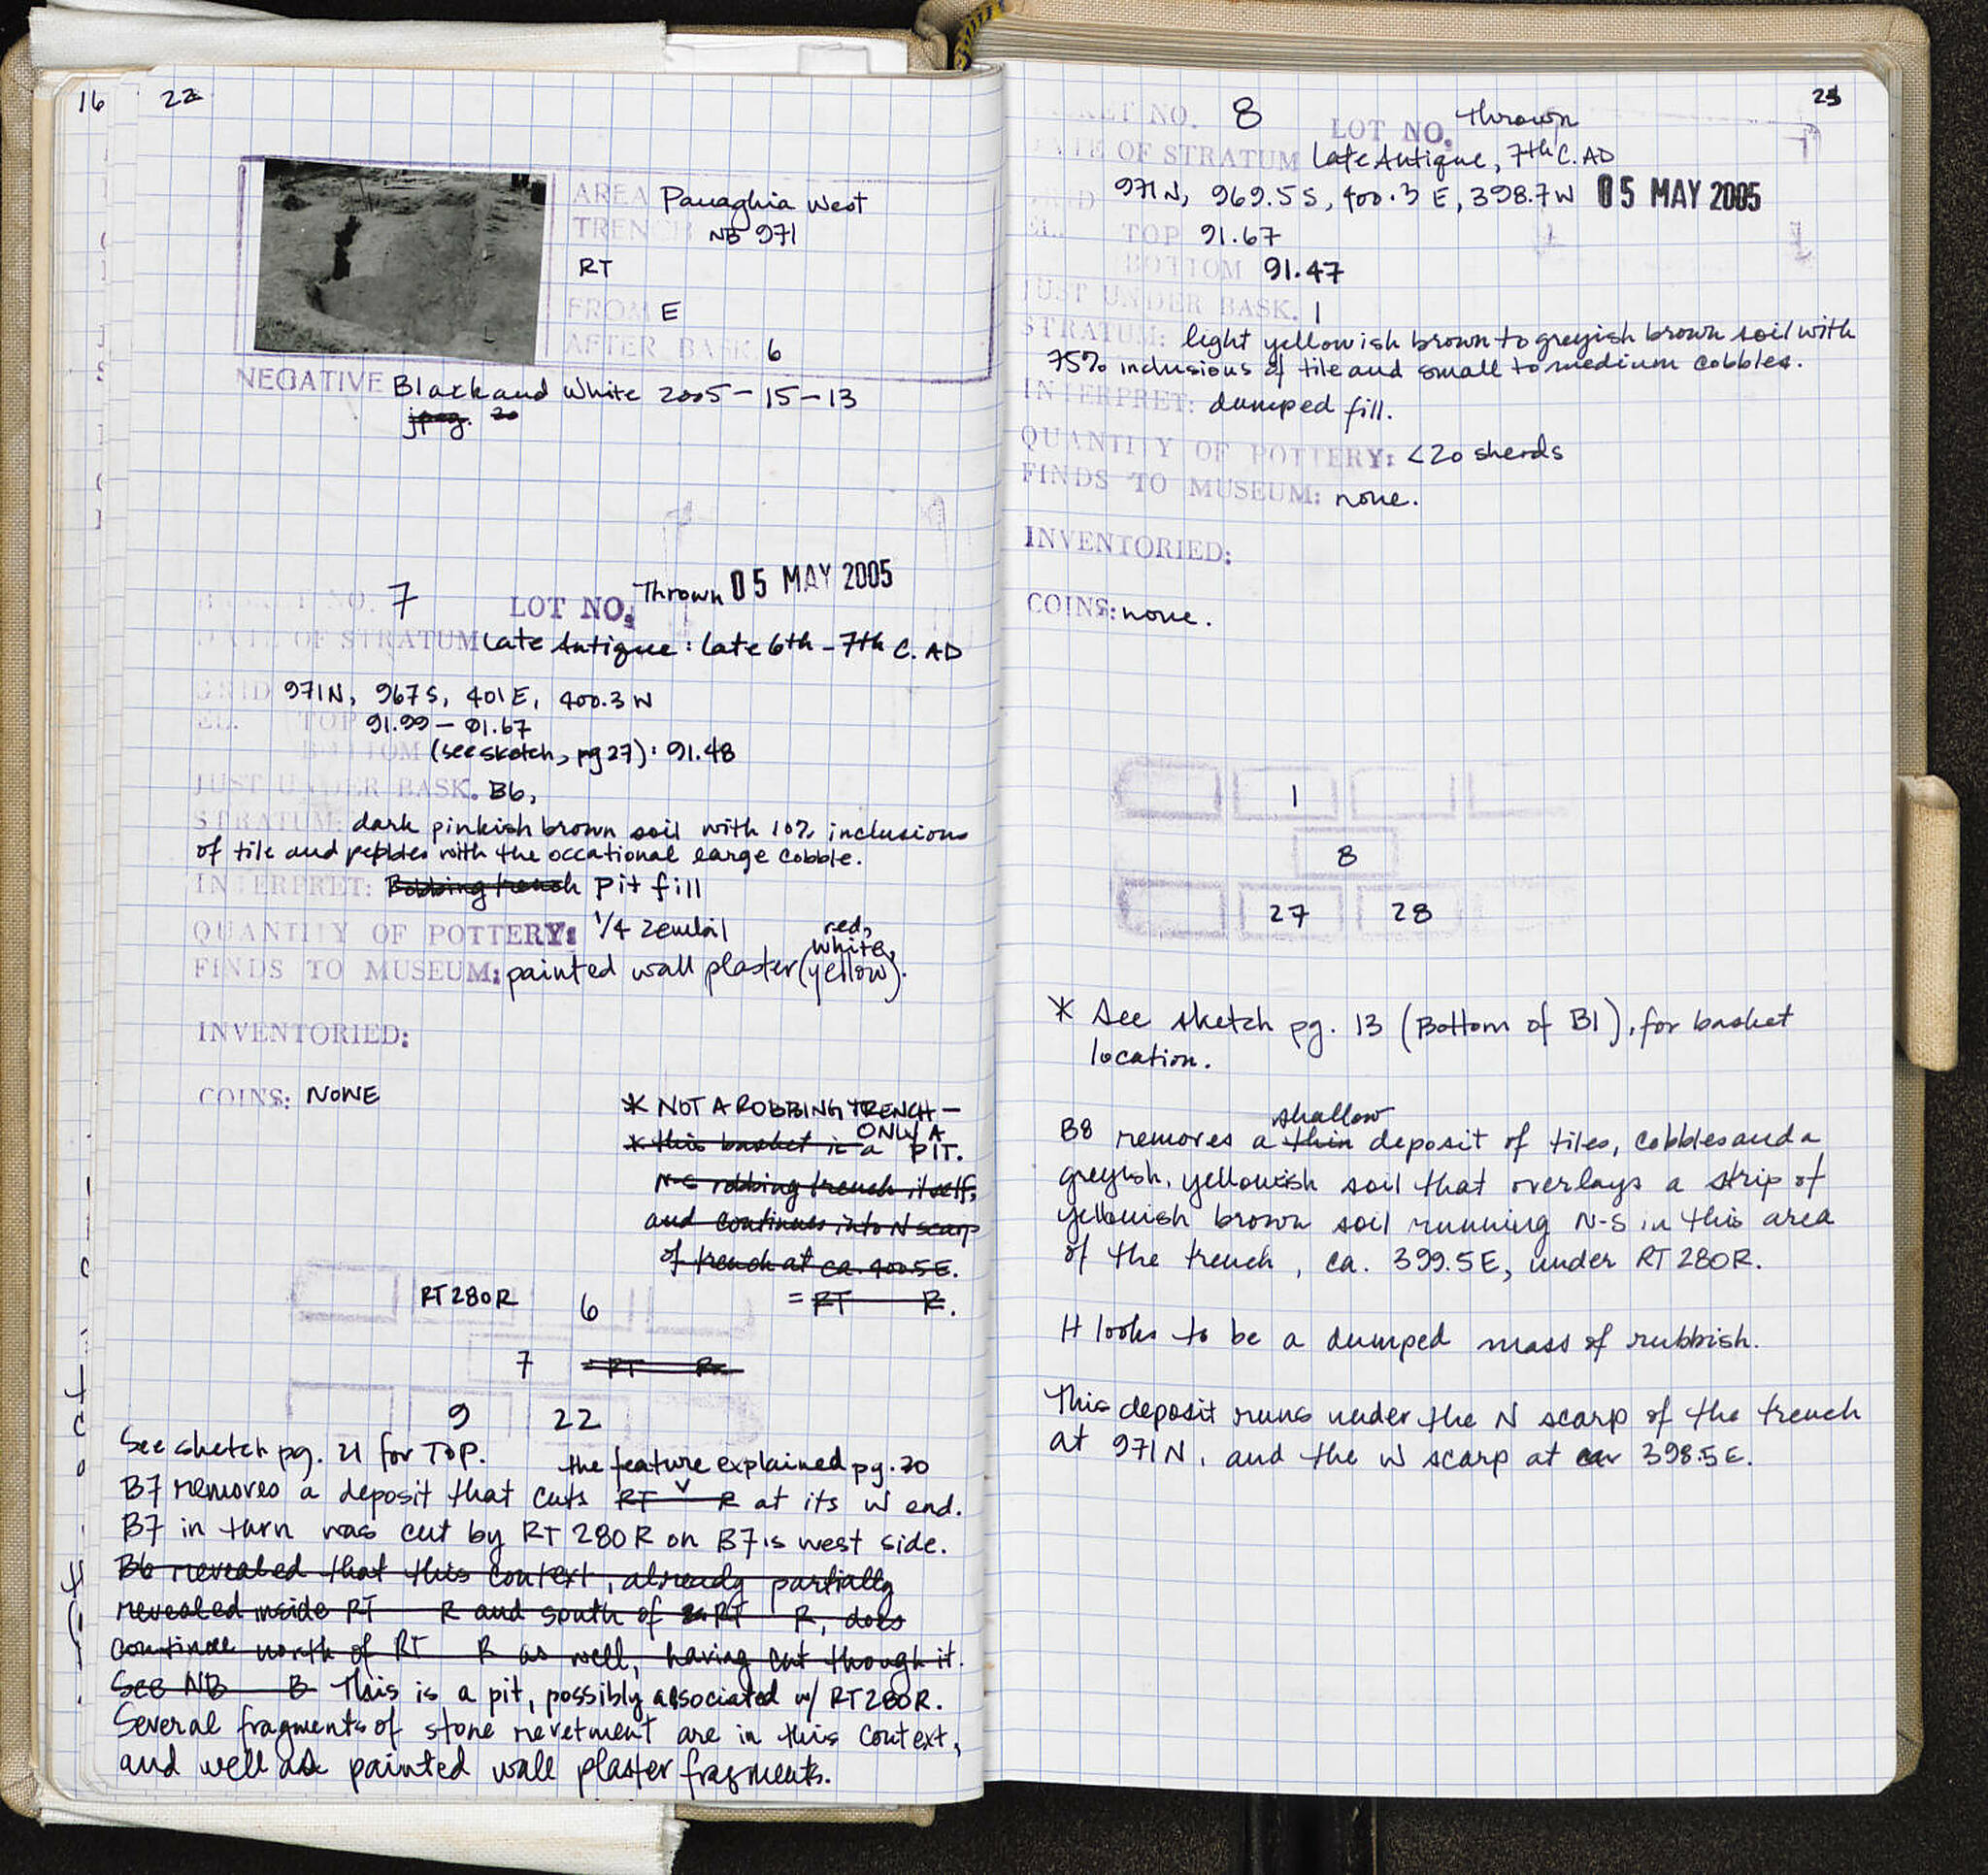 16
22
AREA Panaghia West
TRENCH NB 971
RT
FROM E
AFTER BASK 6
NEGATIVE Black and White 2005-15-13
jpeg. 20
BASKET NO. 7 LOT NO. Thrown 05 MAY 2005
DATE OF STRATUM Late Antique: late 6th-7th C. AD
GRID 971N, 967S, 401E, 400.3W
EL. TOP 91.99-91.67
BOTTOM (see sketch, pg 27): 91.48
JUST UNDER BASK. B6,
STRATUM: dark pinkish brown soil with 10% inclusions
of tile and pebbles with the occational large cobble.
INTERPRET: Robbing trench pit fill
QUANTITY OF POTTERY: 1/4 zembil
FINDS TO MUSEUM: painted wall plaster (red, white, yellow).
INVENTORIED:
COINS: NONE
* NOT A ROBBING TRENCH-
ONLY A
* this basket is a PIT.
N-S robbing trench itself,
and continues into N scarp
of trench at ca. 400.5E.
= RT R.
RT280R 6
7 = RT R
9 22
See sketch pg. 21 for TOP.
the feature explained pg. 20
B7 removes a deposit that cuts RT R at its W end.
B7 in turn was cut by RT 280R on B7's west side.
B6 revealed that this context, already partially
revealed inside RT R and south of RT R, does
continue north of RT R as well, having cut though it.
See NB B This is a pit, possibly associated w/ RT280R.
Several fragments of stone revetment are in this context,
and well as painted wall plaster fragments.
23
BASKET NO. 8 LOT NO. Thrown
DATE OF STRATUM Late Antique, 7th C. AD
GRID 971N, 969.5S, 400.3E, 398.7W 05 MAY 2005
EL. TOP 91.67
BOTTOM 91.47
JUST UNDER BASK. 1
STRATUM: light yellowish brown to greyish brown soil with
75% inclusions of tile and small to medium cobbles.
INTERPRET: dumped fill.
QUANTITY OF POTTERY: <20 sherds
FINDS TO MUSEUM: none.
INVENTORIED:
COINS: none.
1
8
27 28
* See sketch pg. 13 (Bottom of B1), for basket
location.
shallow
B8 removes a thin deposit of tiles, cobbles and a
greyish, yellowish soil that overlays a strip of
yellowish brown soil running N-S in this area
of the trench, ca. 399.5E, under RT 280R.
It looks to be a dumped mass of rubbish.
This deposit runs under the N scarp of the trench
at 971N, and the W scarp at ca 398.5E.